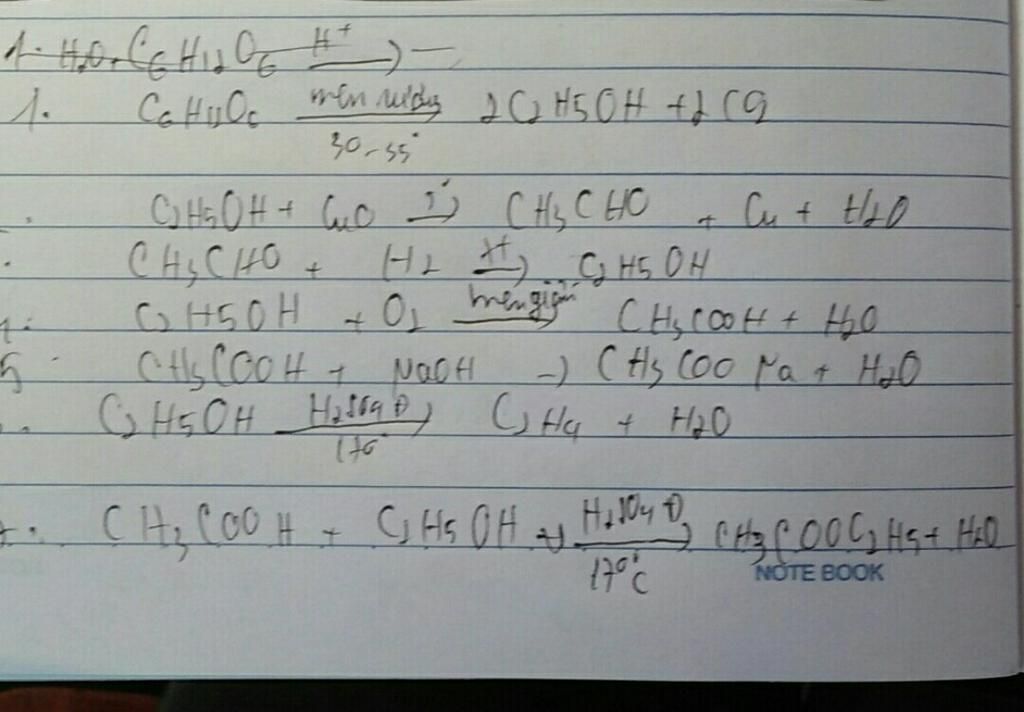 1. H2O + C6H12O6 H+ → —
1. C6H12O6 men rượu → 2C2H5OH + 2CO2
30-35°
C2H5OH + CuO t° → CH3CHO + Cu + H2O
CH3CHO + H2 → C2H5OH
4. C2H5OH + O2 men giấm → CH3COOH + H2O
5. CH3COOH + NaOH → CH3COONa + H2O
C2H5OH H2SO4 Đ → C2H4 + H2O
170°
7. CH3COOH + C2H5OH H2SO4 Đ → CH3COOC2H5 + H2O
170°C
NOTE BOOK